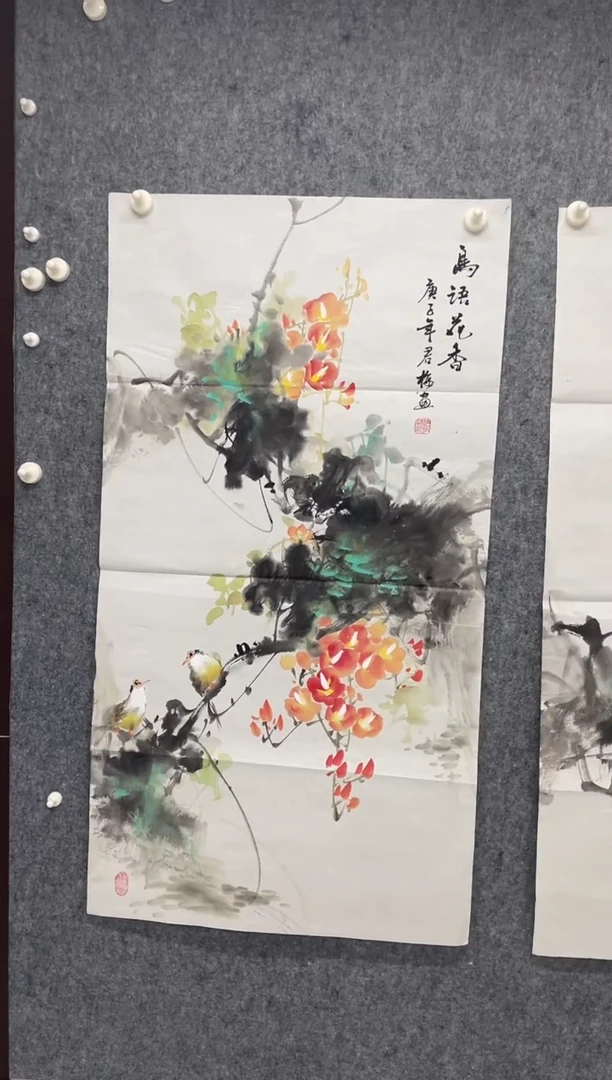 鳥語花香
庚子年君梅画